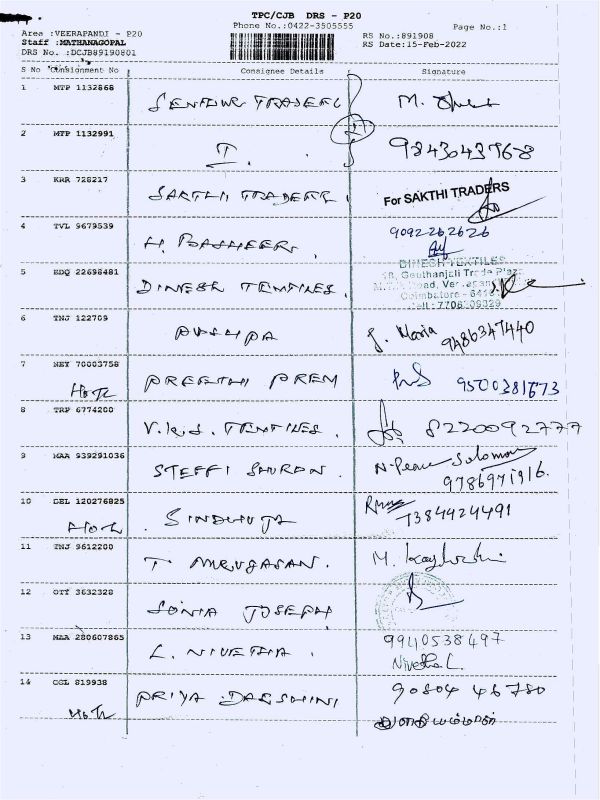 TPC/CJB DRS - P20
Phone No.:0422-3505555
Page No.:1
Area :VEERAPANDI - P20
Staff :MATHANAGOPAL
DRS No. :DCJB89190801
RS No.:891908
RS Date:15-Feb-2022
S No Consignment No Consignee Details Signature
1 MTP 1132868 SENTHUR TRADERS M.
2 MTP 1132991 I. 9843043768
3 KRR 728217 SAKTHI TRADERS For SAKTHI TRADERS
4 TVL 9679539 H. BASHEER. 9092262626
5 EDQ 22698481 DINESH TEXTILES. DINESH TEXTILES
18, Geethanjali Trade Plaza
Road,
Coimbatore - 6416
Cell : 7708209329
6 TNJ 122709 PUSHPA J. Maria 9486347440
7 NEY 70003758 PREETHI PREM 9500381673
8 TRP 6774200 V.K.S. TEXTILES. 8220092777
9 MAA 939291036 STEFFI SHARON. Solomon
9786971916.
10 DEL 120276825 SINDHUJA 7384924491
11 TNJ 9612200 T. MURUGASAN. M.
12 OTY 3632328 SONIA JOSEPH
13 MAA 280607865 L. NIVETHA. 9940538497
Nivetha L.
14 CGL 819938 PRIYA DARSHINI 90804 46780